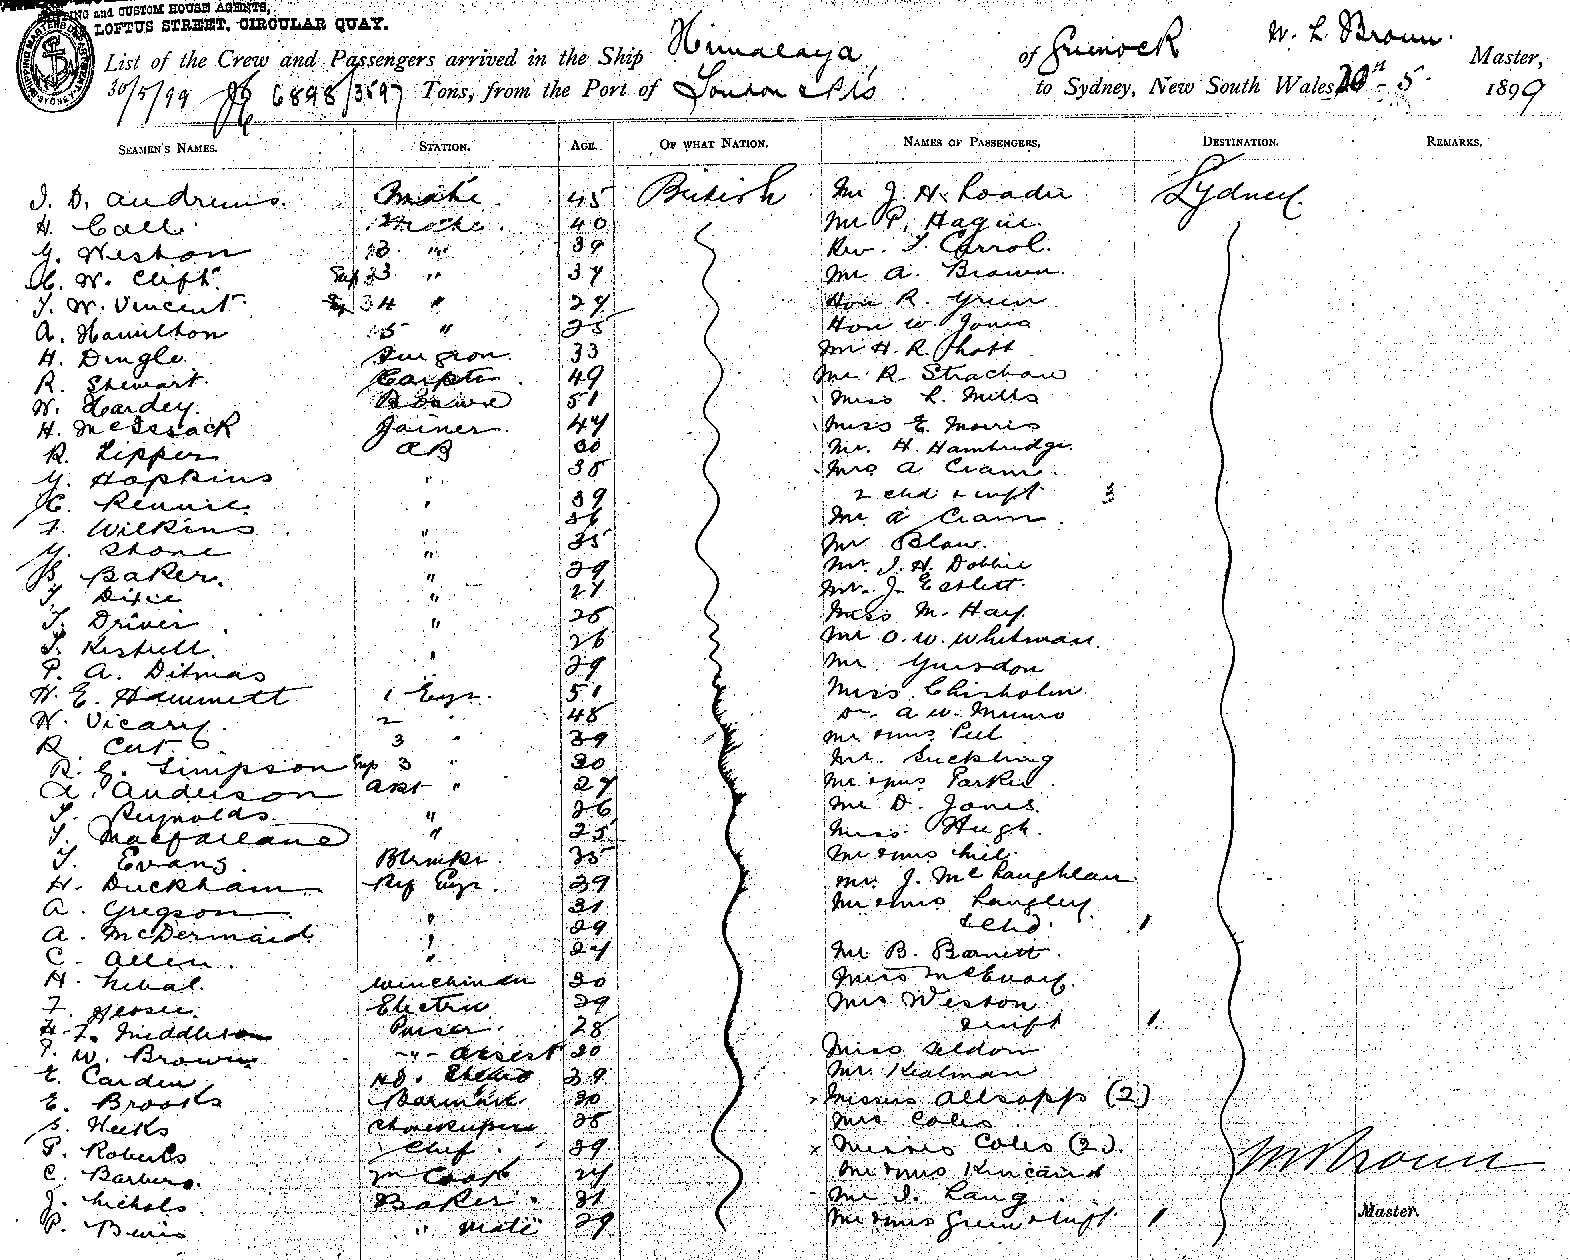 and CUSTOM HOUSE AGENTS,
LOFTUS STREET, CIRCULAR QUAY.
List of the Crew and Passengers arrived in the Ship Himalaya of Greenock W. L. Brown Master,
30/5/99 6898/3597 Tons, from the Port of London & Pts to Sydney, New South Wales 5 1899
SEAMEN'S NAMES. STATION. AGE. OF WHAT NATION. NAMES OF PASSENGERS. DESTINATION. REMARKS.
J. D. Andrews 45 British Mr J. H. Sydney
H. Call 40 Mr P. Hague
G. Weston " 39 Rev. Carrol
W. Clift " 37 Mr A. Brown
W. Vincent 4 " 27 Hon R. Green
A. Hamilton 5 " 25 Hon W. Jones
H. Dingle Surgeon 33 Mr H. R.
R. Stewart Carptr 49 Mr R Strachan
W. Hardey 51 Miss L. Mills
H. McIssack Joiner 47 Miss E. Morris
R. AB 30 Mr. H. Hambridge
G. Hopkins " 38 Mrs A Cram
Rennie " 39 2 chd & inft 3
Wilkins " 36 Mr A Cram
G. Stone " 35 Mr Blaw
Baker " 29 Mr. J. H. Dobbie
Dixie " 27 Mr. J.
Driver " 25 Miss M. Hay
" 26 Mr O. W. Whitman
P. A. Ditmas 29 Mr.
H. E. Hammett 1 Engr. 51 Miss Chisholm
W. Vicary 2 " 48 Dr. A. W. Munro
R 3 " 39 Mr & Mrs Peel
R. G. Simpson Sup 3 " 30 Mr. Suckling
A. Anderson Asst " 27 Mr & Mrs Parker
Reynolds " 26 Mr D. Jones
Macfarlane " 25 Miss Hugh
Evans 35 Mr & Mrs
H. Duckham Ref Engr. 29 Mr. J. McLaughlan
A. Gregson " 31 Mr & Mrs Langley
A. McDermaid " 29 & Chd. 1
C. Allen " 24 Mr B. Barnett
H. Winchman 30 Miss McEvoy
F. Electrn 29 Mrs Weston
Middleton Purser 28 & inft 1
W. Brown " Assist 20 Miss Seldon
E. Carden Hd. 39 Mr. Kialman
E. Brooks Barman 30 Misses Allsopp (2)
S. Weeks Storekeeper Mrs Coles
P. Roberts Chef 39 Misses Coles (2)
C. Barbero Cook 27 Mr & Mrs Kincaird W Brown
J. Nichols Baker 31 Mr J. Lang Master.
P. Bevis " mate 29 Mr & Mrs Green & inft 1